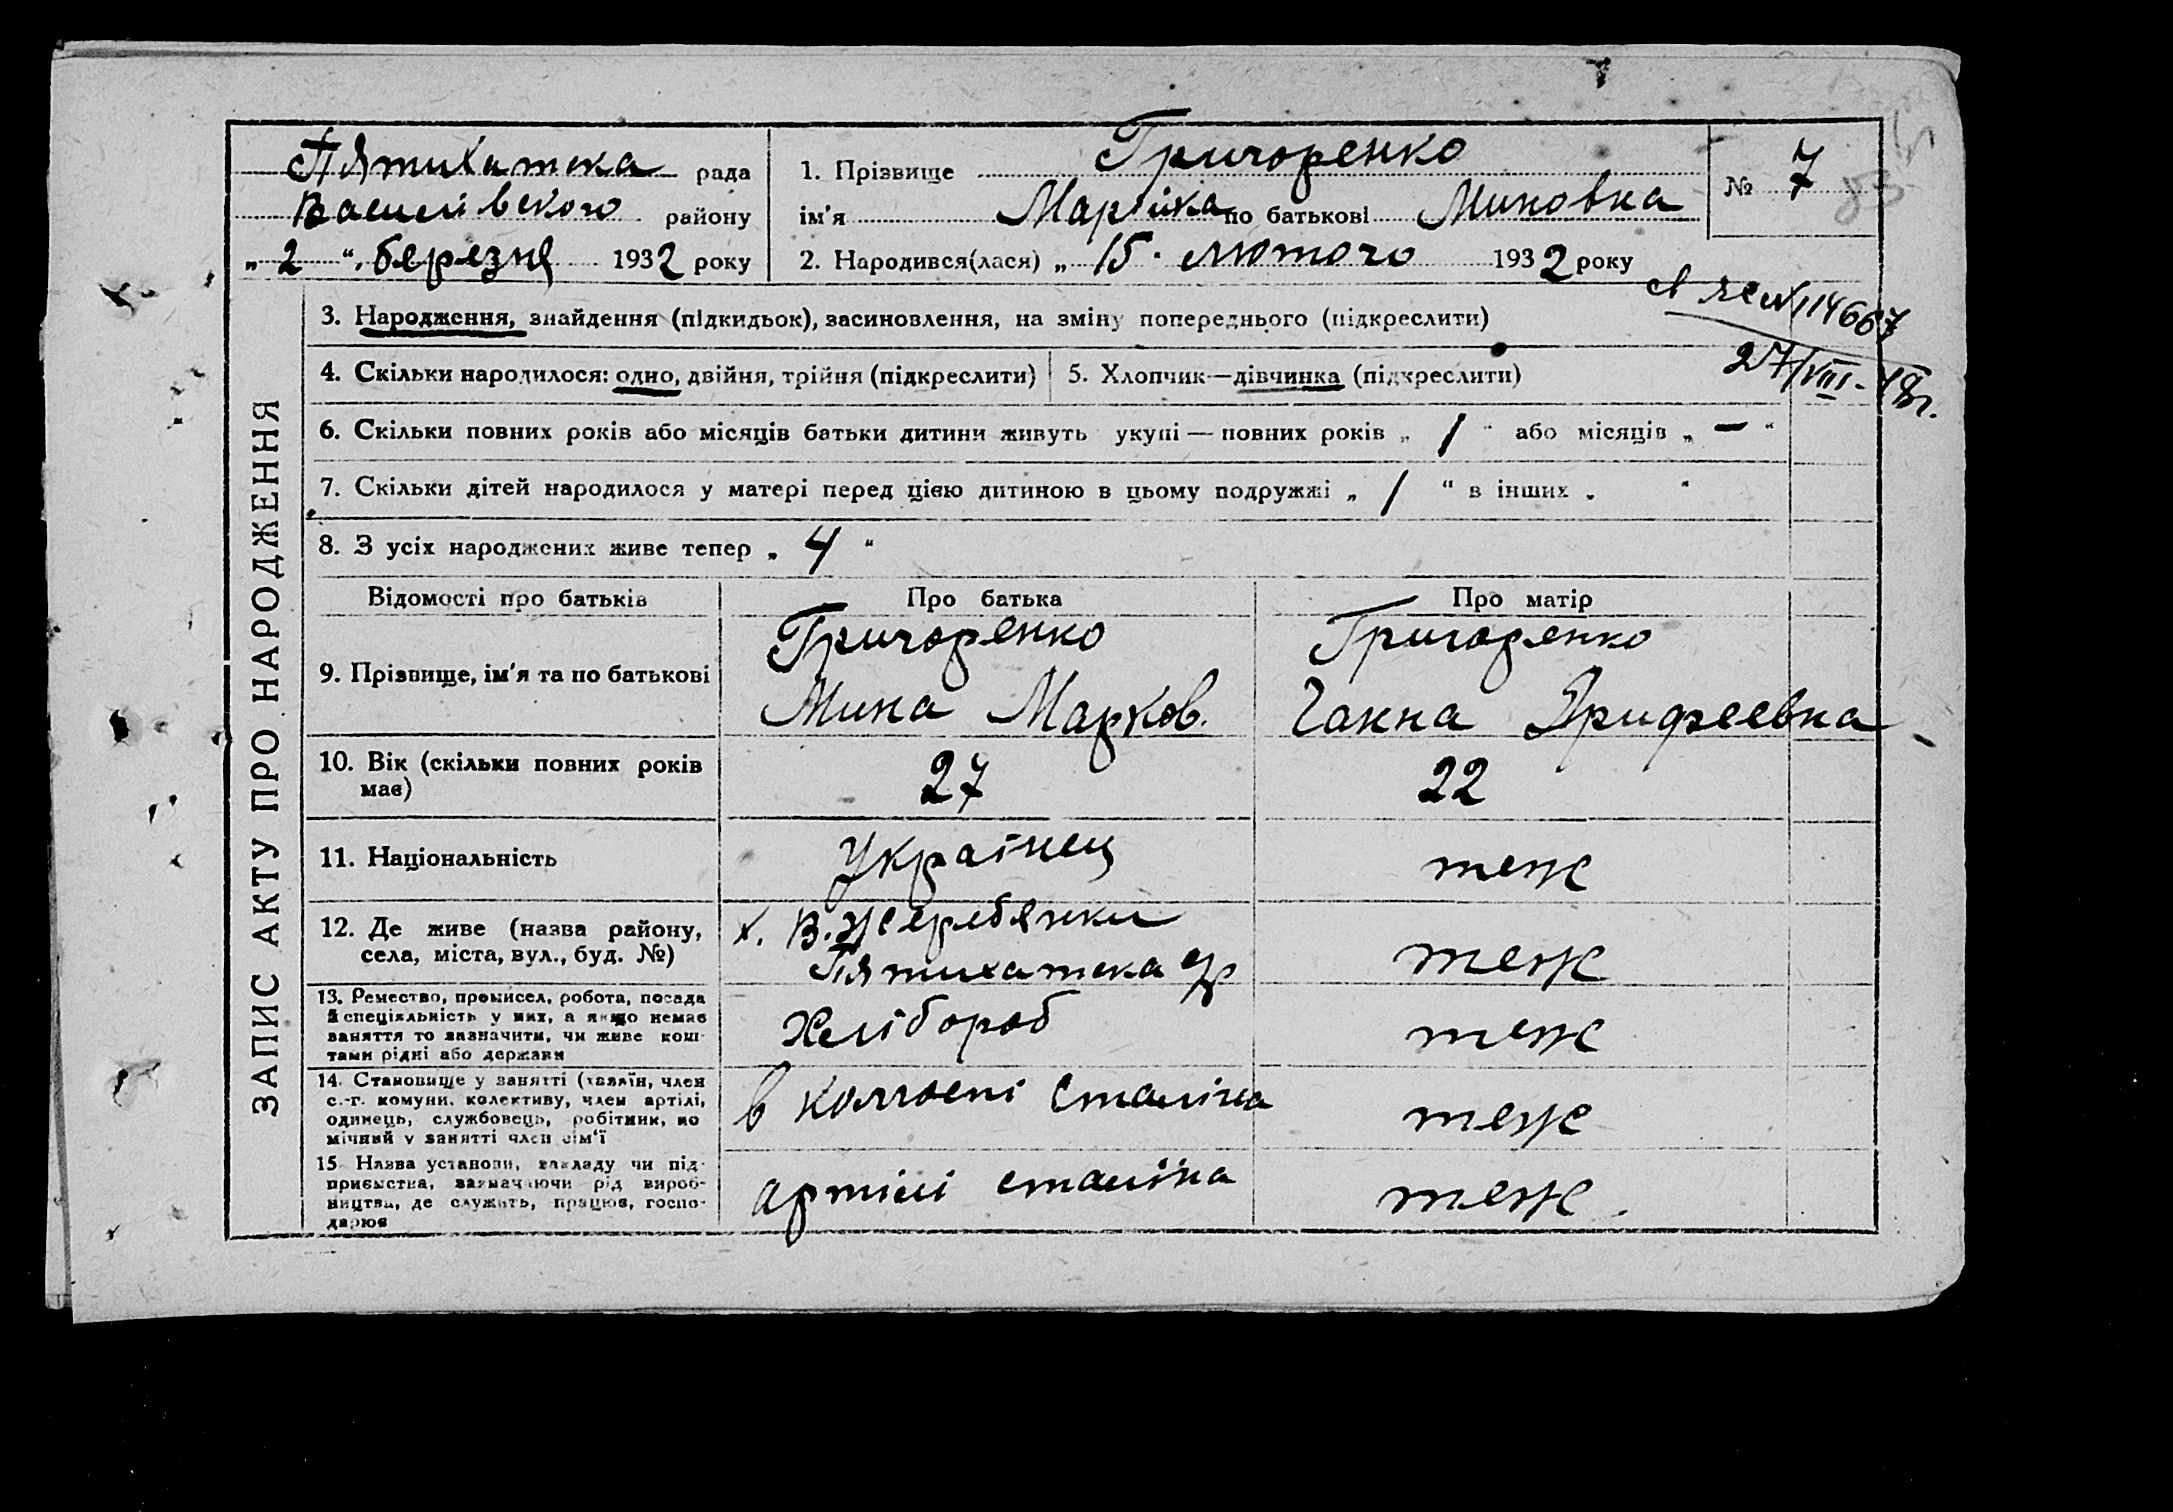 Пятихатська рада
Василівского району
„ 2 “ березня 1932 року
1. Прізвище Григоренко
ім'я Марійка по батькові Миновна
2. Народився(лася) „ 15 · лютого 1932 року
№ 7
83
27/VIII-48г.
ЗАПИС АКТУ ПРО НАРОДЖЕННЯ
3. Народження, знайдення (підкидьок), засиновлення, на зміну попереднього (підкреслити)
4. Скільки народилося: одно, двійня, трійня (підкреслити) 5. Хлопчик—дівчинка (підкреслити)
6. Скільки повних років або місяців батьки дитини живуть укупі — повних років „ 1 “ або місяців „ — “
7. Скільки дітей народилося у матері перед цією дитиною в цьому подружжі „ 1 “ в інших „ “
8. З усіх народжених живе тепер „ 4 “
Відомості про батьків Про батька Про матір
9. Прізвище, ім'я та по батькові
Григоренко
Мина Марков.
Григоренко
Ганна
10. Вік (скільки повних років
має)
27 22
11. Національність Українец теж
12. Де живе (назва району,
села, міста, вул., буд. №)
х. В. Жеребянки
Пятихатська с/р
теж
13. Ремество, промисел, робота, посада
й спеціяльність у них, а якщо немає
заняття то зазначити, чи живе кош-
тами рідні або держави
Хлібороб теж
14. Становище у занятті (хазяїн, член
с.-г. комуни, колективу, член артілі,
одинець, службовець, робітник, по
мічний у занятті член сім'ї
в колгоспі Сталіна теж
15 Назва установи, закладу чи під-
приємства, зазначаючи рід вироб-
ництва, де служить, працює, госпо-
дарює
артілі сталіна теж.